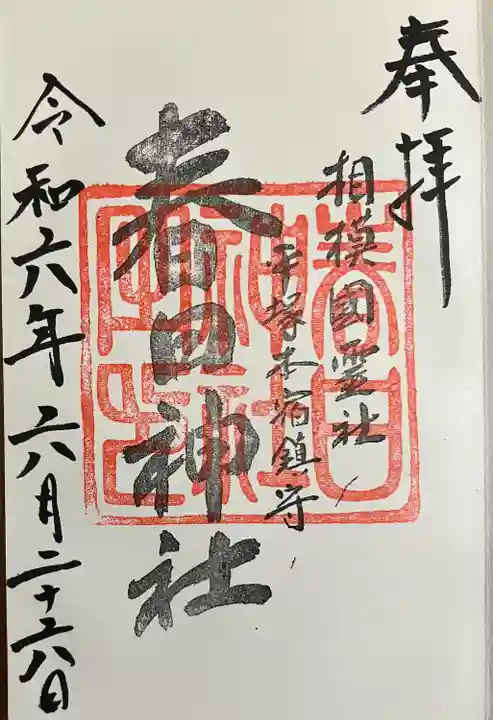 奉拝
相模國霊社
平塚本宿鎮守
春日神社
令和六年六月二十六日